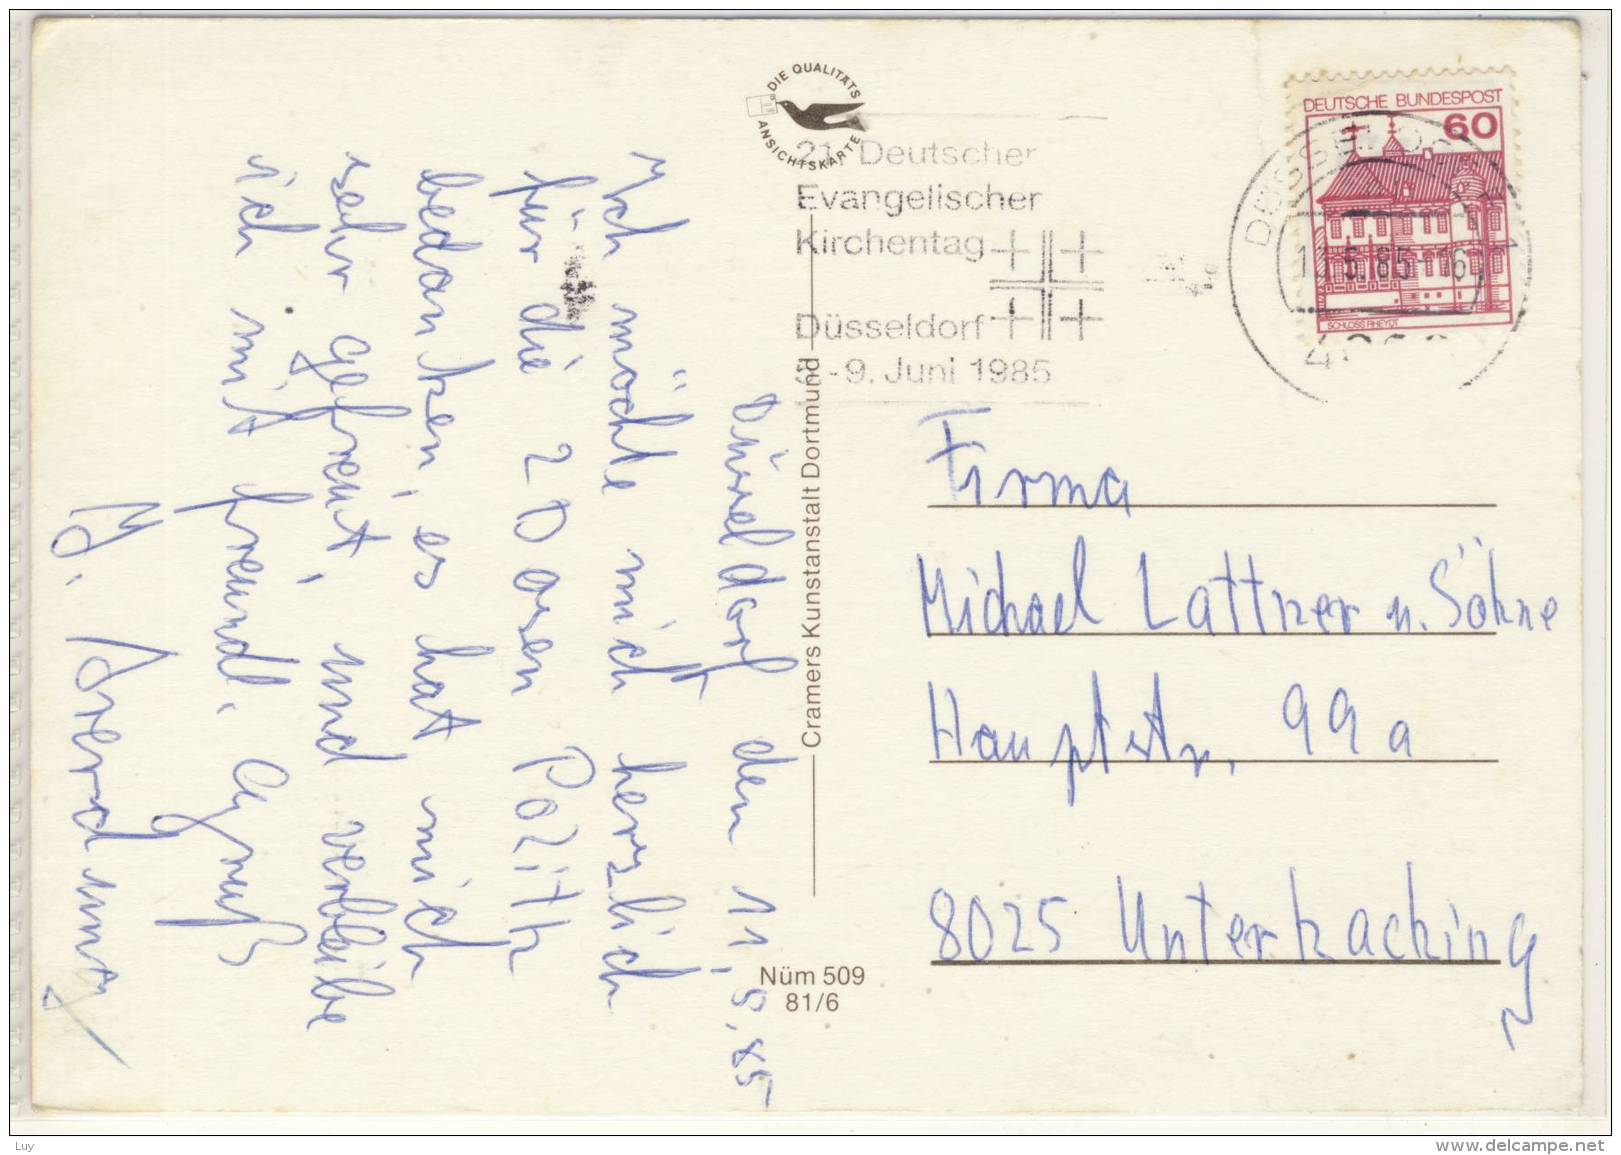 DIE QUALITÄTS
ANSICHTSKARTE
21. Deutscher
Evangelischer
Kirchentag
Düsseldorf
-9. Juni 1985
DEUTSCHE BUNDESPOST
60
SCHLOSS RHEYDT
Düsseldorf den 11.5.85
Ich möchte mich herzlich
für die 20
bedanken, es hat mich
sehr gefreut, und verbleibe
ich mit freundl. Gruß
Cramers Kunstanstalt Dortmund
Nüm 509
81/6
Firma
Michael Lattner u. Söhne
Hauptstr. 99a
8025 Unterhaching
Luy
www.delcampe.net